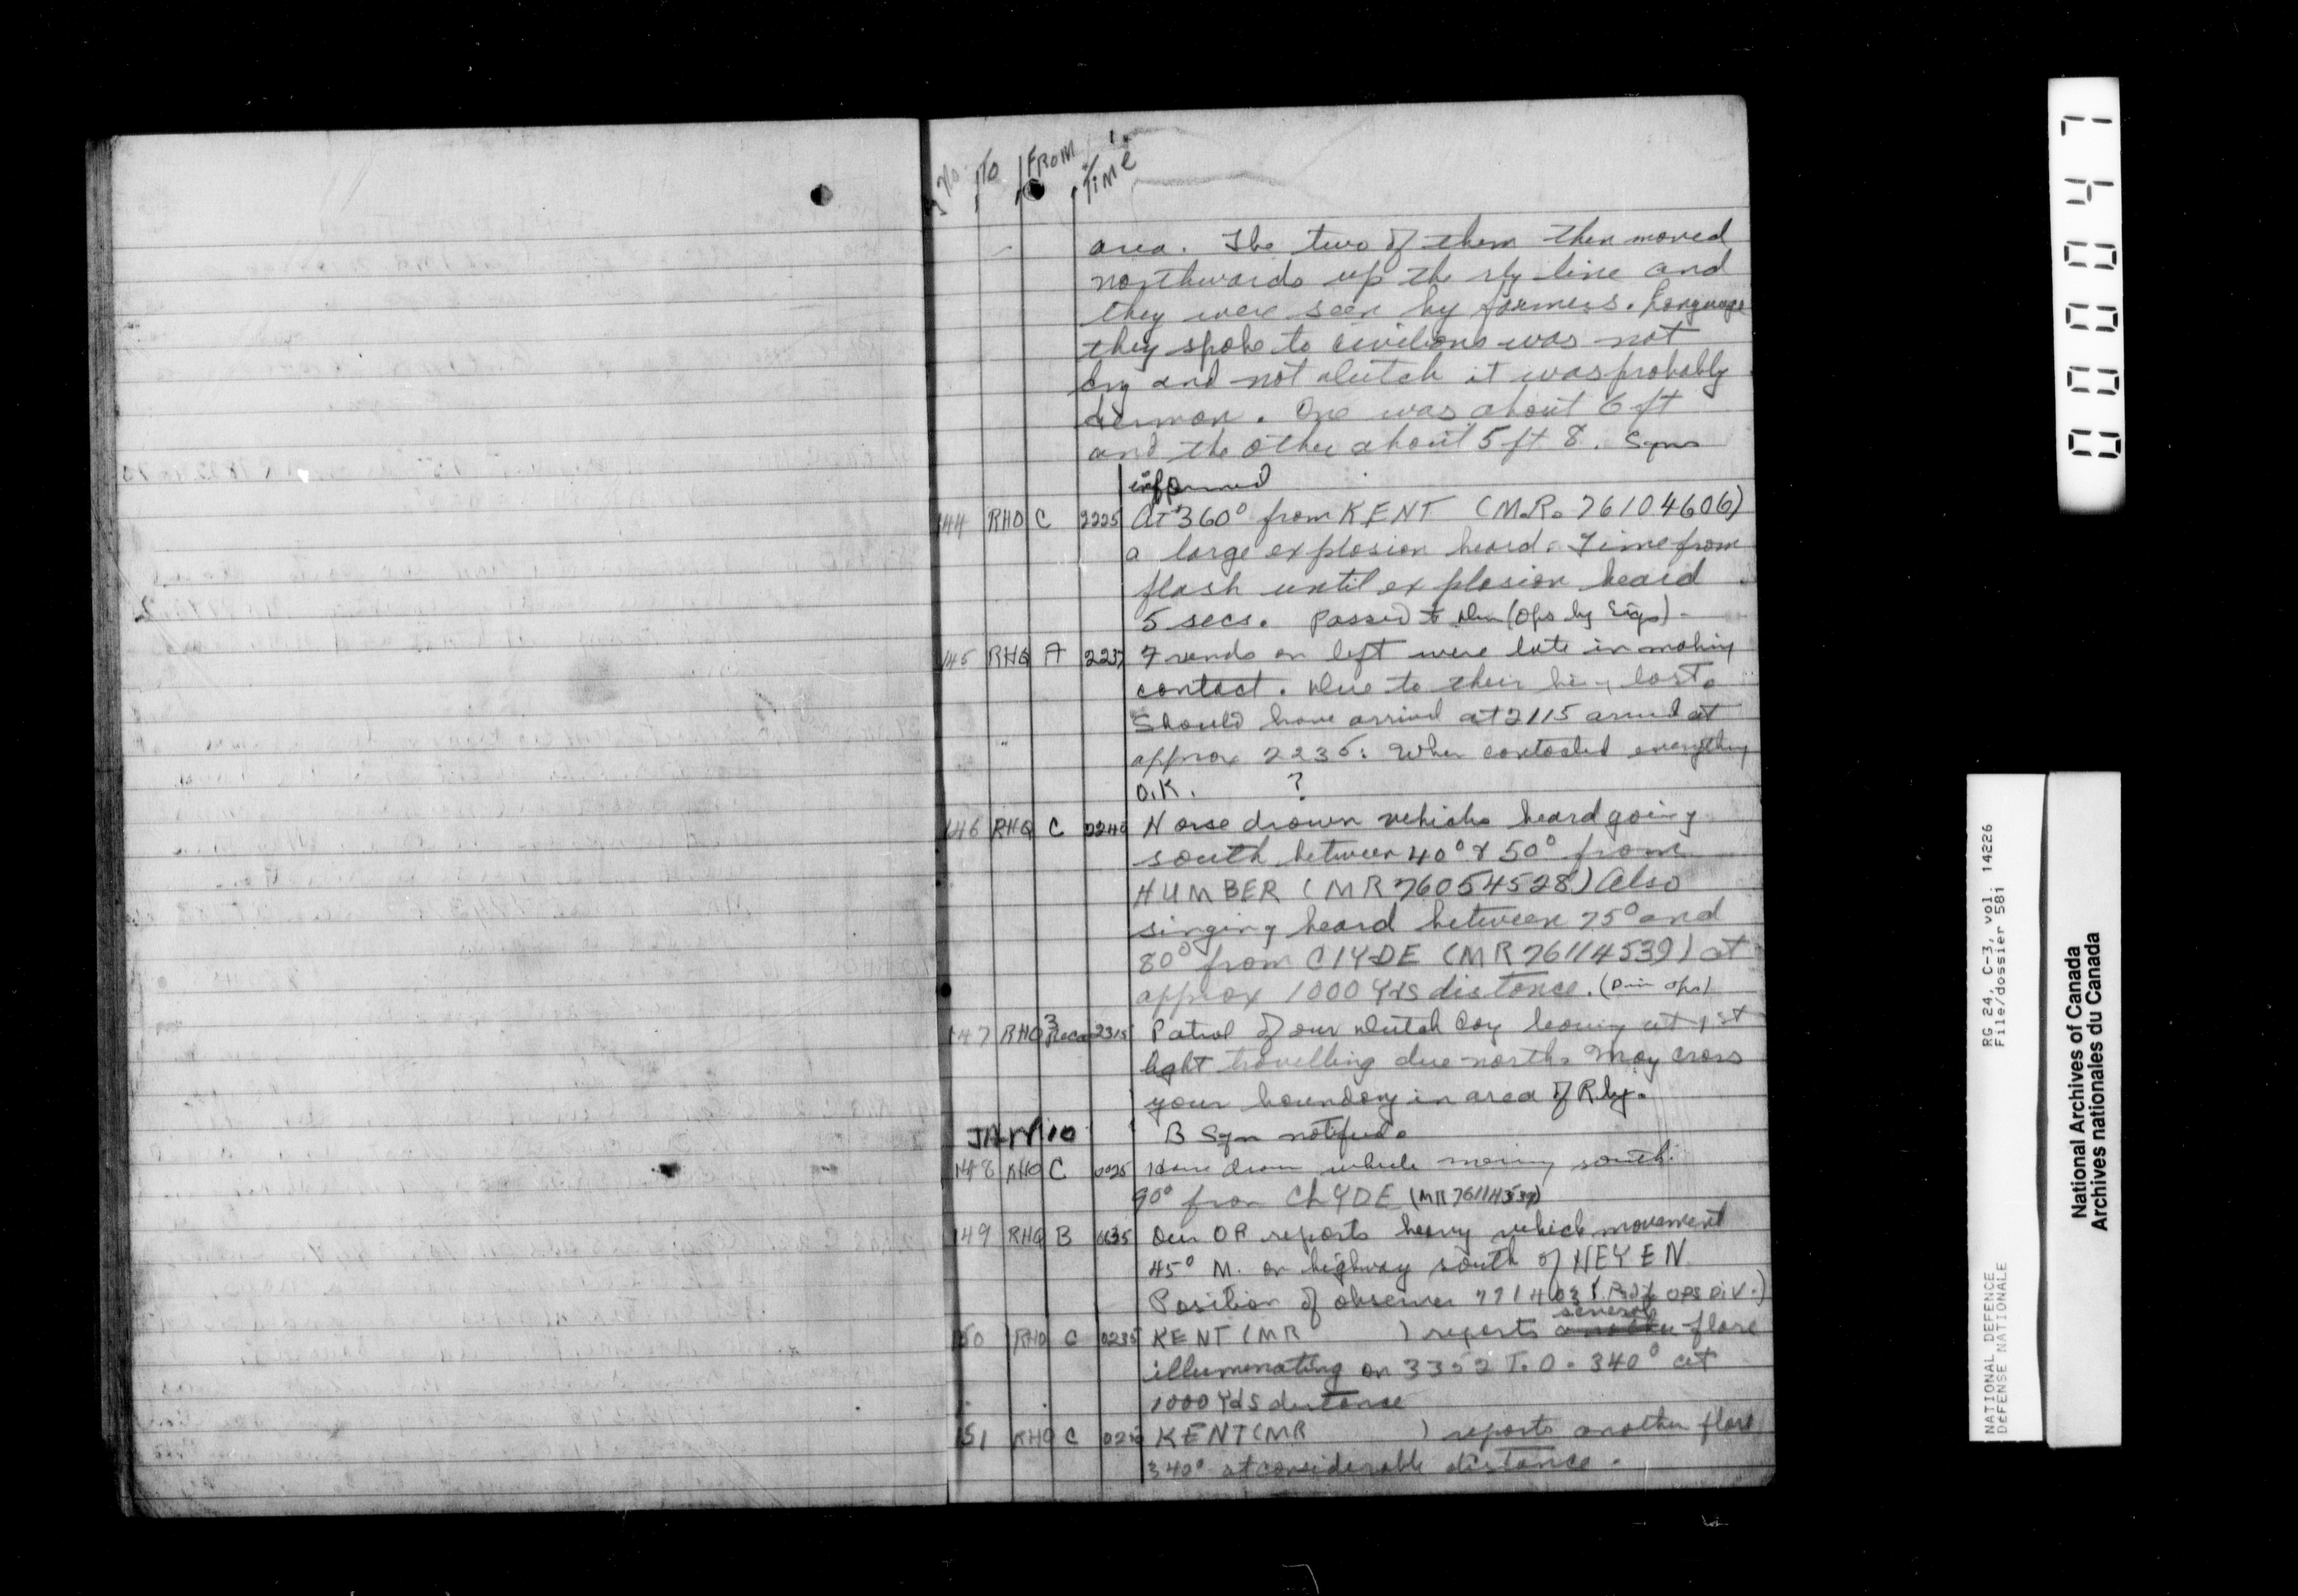 No. TO FROM TIME
area. The two of them then moved
northwards up the rly line and
they were seen by farmers. Language
they spoke to civilians was not
Eng and not dutch it was probably
German. One was about 6 ft
and the other about 5 ft 8. Sqns
informed
144 RHQ C 2225 At 360° from KENT (M.R. 76104606)
a large explosion heard. Time from
flash until explosion heard
5 secs. Passed to Div (Ops by Sigs)
145 RHQ A 2237 Friends on left were late in making
contact. Due to their being lost.
Should have arrived at 2115 arrived at
approx 2235. When contacted everything
O.K. ?
146 RHQ C 2240 Horse drawn vehicles heard going
south between 40° & 50° from
HUMBER (MR 76054528) Also
singing heard between 75° and
80° from CLYDE (MR 76114539) at
approx 1000 Yds distance. (Div Ops)
147 RHQ 3 Recce 2315 Patrol of our dutch Coy leaving at 1st
light travelling due north. May cross
your boundary in area of Rly.
JAN 10 B Sqn notified.
148 RHQ C 0025 Horse drawn vehicle moving south
90° from CLYDE (MR 76114539)
149 RHQ B Our OP reports heavy vehicle movement
45° M. on highway south of HEYEN
Position of observer 771403 OPS DIV.)
several
150 RHQ C 0235 KENT (MR ) reports another flare
illuminating on 3352 T.O. 340° at
1000 Yds distance
151 RHQ C KENT (MR ) reports another flare
340° at considerable distance.
000047
RG 24, C-3, vol. 14226
File/dossier 581
NATIONAL DEFENCE
DEFENSE NATIONALE
National Archives of Canada
Archives nationales du Canada